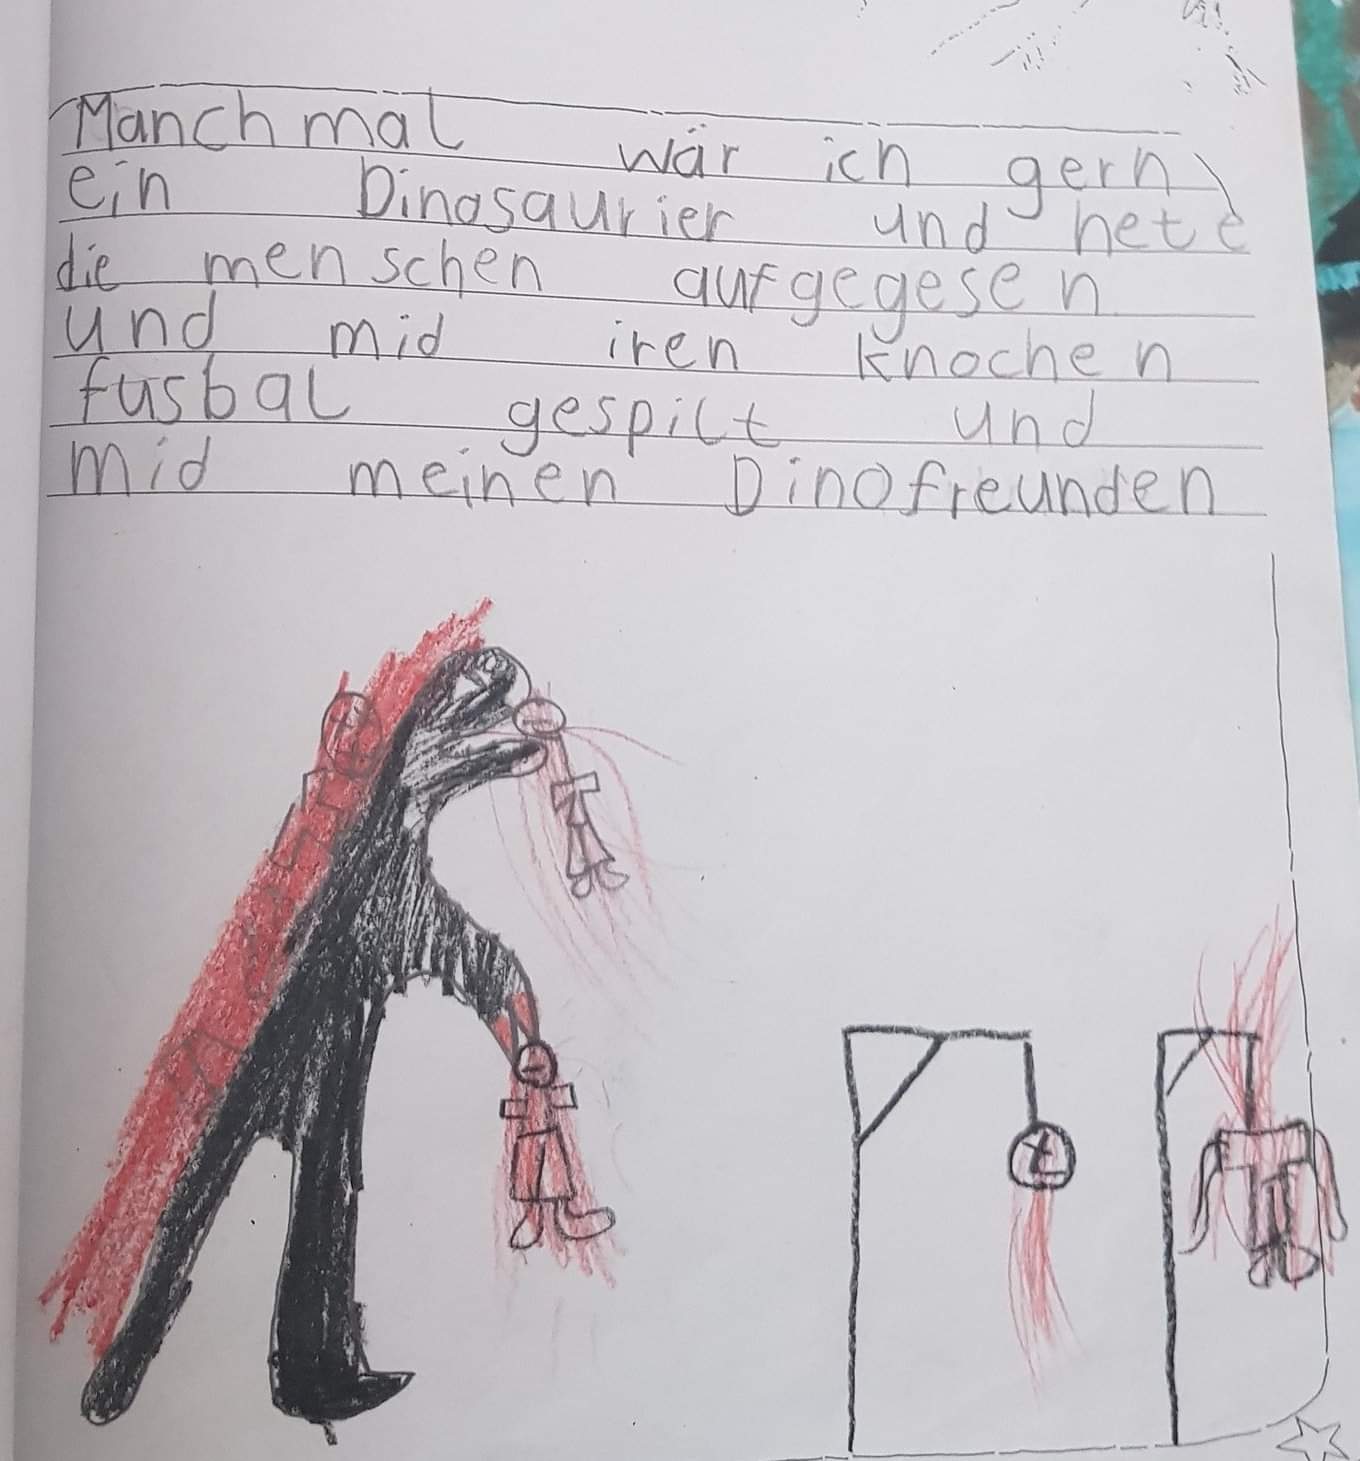 Manchmal wär ich gern
ein Dinosaurier und hete
die menschen aufgegesen
und mid iren Knochen
fusbal gespilt und
mid meinen Dinofreunden